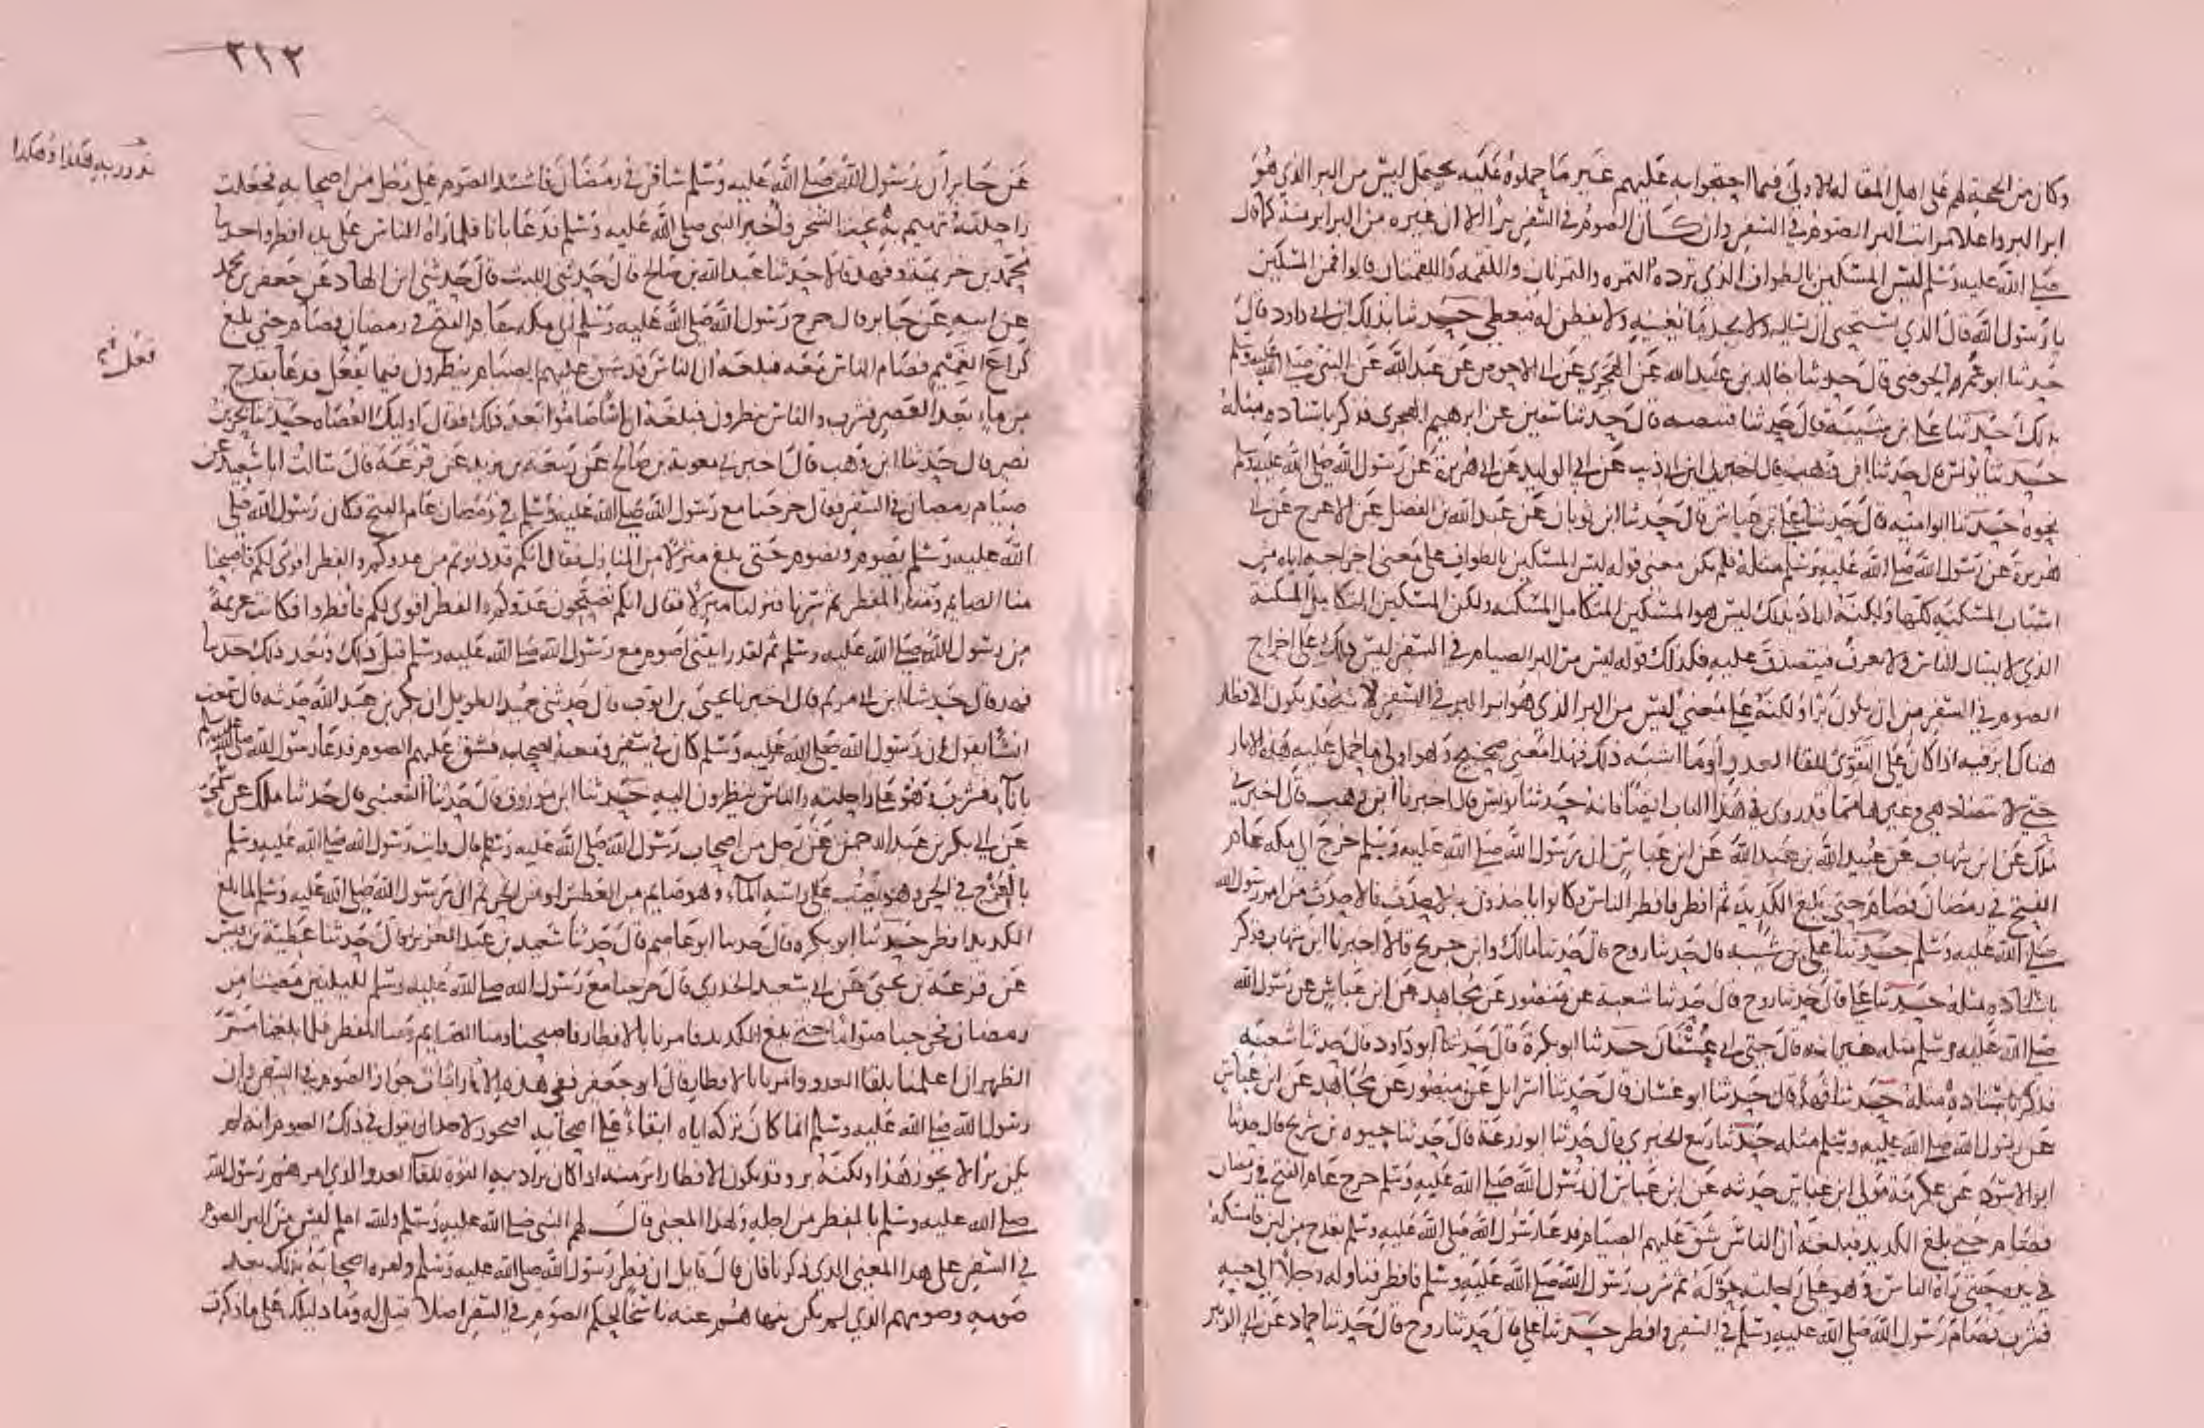 وكان من الحجة لهم على اهل المقالة الاولى فيما احتجوا به عليهم غير ما حملوه عليه يحتمل ليس من البر الذي هو
ابر البر واعلا مراتب البر الصوم في السفر وان كان الصوم في السفر برا الا ان غيره من البر ابر منه كما قال
صلى الله عليه وسلم ليس المسكين بالطواف الذي ترده التمره والتمرتان واللقمه واللقمتان قالوا فمن المسكين
يا رسول الله قال الذي يستحيي ان يسال ولا يجد ما يغنيه ولا يفطن له فيعطى حدثنا بذلك ابن ابي داود قال
حدثنا ابو عمر الحوضي قال حدثنا خالد بن عبد الله عن الهجري عن ابي الاحوص عن عبد الله عن النبي صلى الله عليه وسلم
بذلك حدثنا علي بن شيبة قال حدثنا قبيصه قال حدثنا سفين عن ابرهيم الهجري فذكر باسناده مثله
حدثنا يونس قال حدثنا ابن وهب قال اخبرني ابن ابي ذيب عن ابي الوليد عن ابي هريرة عن رسول الله صلى الله عليه وسلم
نحوه حدثنا ابو اميه قال حدثنا علي بن عياش قال حدثنا ابن ثوبان عن عبد الله بن الفضل عن الاعرج عن ابي
هريرة عن رسول الله صلى الله عليه وسلم مثله فلم يكن معنى قوله ليس المسكين بالطواف على معنى اخراجه اياه من
اسباب المسكنه كلها ولكنه اراد بذلك ليس هو المسكين المتكامل المسكنه ولكن المسكين المتكامل المسكنة
الذي لا يسال الناس ولا يعرف فيتصدق عليه فكذلك قوله ليس من البر الصيام في السفر ليس ذلك على اخراج
الصوم في السفر من ان يكون برا ولكنه على معنى ليس من البر الذي هو ابر البر في السفر لانه قد يكون الافطار
هناك ابر منه اذا كان على التقوى للقا العدو وما اشبه ذلك فهذا معنى صحيح وهو اولى ما حمل عليه هذه الاثار
حتى لا تتضاد هي وغيرها مما قد روي في هذا الباب ايضا فانه حدثنا يونس قال اخبرنا ابن وهب قال اخبرني
ملك عن ابن شهاب عن عبيد الله بن عبد الله عن ابن عباس ان رسول الله صلى الله عليه وسلم خرج الى مكه عام
الفتح في رمضان فصام حتى بلغ الكديد ثم افطر فافطر الناس وكانوا ياخذون بالاحدث فالاحدث من امر رسول الله
صلى الله عليه وسلم حدثنا علي بن شيبه قال حدثنا روح قال حدثنا مالك وابن جريج قالا اخبرنا ابن شهاب فذكر
باسناده مثله حدثنا علي قال حدثنا روح قال حدثنا شعبة عن منصور عن مجاهد عن ابن عباس عن رسول الله
صلى الله عليه وسلم مثله غير انه قال حتى اتى عسفان حدثنا ابو بكرة قال حدثنا ابو داود قال حدثنا شعبة
فذكر باسناده مثله حدثنا فهد قال حدثنا ابو غسان قال حدثنا اسرايل عن منصور عن مجاهد عن ابن عباس
عن رسول الله صلى الله عليه وسلم مثله حدثنا ربيع الجيزي قال حدثنا ابو زرعة قال حدثنا حيوه بن شريح قال حدثنا
ابو الاسود عن عكرمة مولى ابن عباس حدثه عن ابن عباس ان رسول الله صلى الله عليه وسلم خرج عام الفتح في رمضان
فصام حتى بلغ الكديد فبلغه ان الناس شق عليهم الصيام فدعا رسول الله صلى الله عليه وسلم بقدح من لبن فامسكه
في يده حتى راه الناس وهو على راحلته حوله ثم شرب رسول الله صلى الله عليه وسلم فافطر فناوله رجلا الى جنبه
فشرب فصام رسول الله صلى الله عليه وسلم في السفر وافطر حدثنا علي قال حدثنا روح قال حدثنا حماد عن ابي الزبير
٢١٢
عن جابر ان رسول الله صلى الله عليه وسلم سافر في رمضان فاشتد الصوم على رجل من اصحابه فجعلت
راحلته تهيم به تحت الشجر واخبر النبي صلى الله عليه وسلم فدعا باناء فلما راه الناس على يده افطروا حدثنا
محمد بن خزيمة وفهد قالا حدثنا عبد الله بن صالح قال حدثني الليث قال حدثني ابن الهاد عن جعفر بن محمد
عن ابيه عن جابر قال خرج رسول الله صلى الله عليه وسلم الى مكه عام الفتح في رمضان فصام حتى بلغ
كراع الغميم فصام الناس معه فبلغه ان الناس قد شق عليهم الصيام ينظرون فيما يفعل فدعا بقدح
من ماء بعد العصر فشرب والناس ينظرون فبلغه ان ناسا صاموا بعد ذلك فقال اوليك العصاه حدثنا بحر بن
نصر قال حدثنا ابن وهب قال اخبرني معوية بن صالح عن ربيعه بن يزيد عن قزعة قال سالت ابا سعيد عن
صيام رمضان في السفر فقال خرجنا مع رسول الله صلى الله عليه وسلم في رمضان عام الفتح فكان رسول الله صلى
الله عليه وسلم يصوم ونصوم حتى بلغ منزلا من المنازل فقال انكم قد دنوتم من عدوكم والفطر اقوى لكم فاصبحنا
منا الصايم ومنا المفطر ثم سرنا فنزلنا منزلا فقال انكم تصبحون عدوكم والفطر اقوى لكم فافطروا فكانت عزيمة
من رسول الله صلى الله عليه وسلم ثم لقد رايتني اصوم مع رسول الله صلى الله عليه وسلم قبل ذلك وبعد ذلك حدثنا
فهد قال حدثنا ابن ابي مريم قال اخبرنا يحيى بن ايوب قال حدثني حميد الطويل ان بكر بن عبد الله حدثه قال سمعت
انسا يقول ان رسول الله صلى الله عليه وسلم كان في سفر ومعه اصحابه فشق عليهم الصوم فدعا رسول الله صلى الله عليه وسلم
باناء فشرب وهو على راحلته والناس ينظرون اليه حدثنا ابن مرزوق قال حدثنا القعنبي قال حدثنا ملك عن سمي
عن ابي بكر بن عبد الرحمن عن رجل من اصحاب رسول الله صلى الله عليه وسلم قال رايت رسول الله صلى الله عليه وسلم
بالعرج في الحر وهو يصب على راسه الماء وهو صايم من العطش او من الحر ثم ان رسول الله صلى الله عليه وسلم لما بلغ
الكديد افطر حدثنا ابو بكره قال حدثنا ابو عاصم قال حدثنا سعيد بن عبد العزيز قال حدثنا عطية بن قيس
عن قزعة بن يحيى عن ابي سعيد الخدري قال خرجنا مع رسول الله صلى الله عليه وسلم لليلتين مضيتا من
رمضان فخرجنا صواما حتى بلغ الكديد فامرنا بالافطار فاصبحنا ومنا الصايم ومنا المفطر فلما بلغنا مر
الظهران اعلمنا بلقا العدو وامرنا بالافطار قال ابو جعفر ففي هذه الاثار اثبات جواز الصوم في السفر وان
رسول الله صلى الله عليه وسلم انما كان تركه اياه ابقاء على اصحابه افيجوز لاحد ان يقول في ذلك الصوم انه لم
يكن برا لا يجوز هذا ولكنه بر وقد يكون الافطار ابر منه اذا كان يراد به القوة للقا العدو الذي امرهم رسول الله
صلى الله عليه وسلم بالفطر من اجله ولهذا المعنى قال لهم النبي صلى الله عليه وسلم والله اعلم ليس من البر الصوم
في السفر على هذا المعنى الذي ذكرنا فان قال قايل ان فطر رسول الله صلى الله عليه وسلم وامره اصحابه بذلك بعد
صومه وصومهم الذي لم يكن ينهاهم عنه ناسخ لحكم الصوم في السفر اصلا قيل له وما دليلك على ما ذكرت
فعل